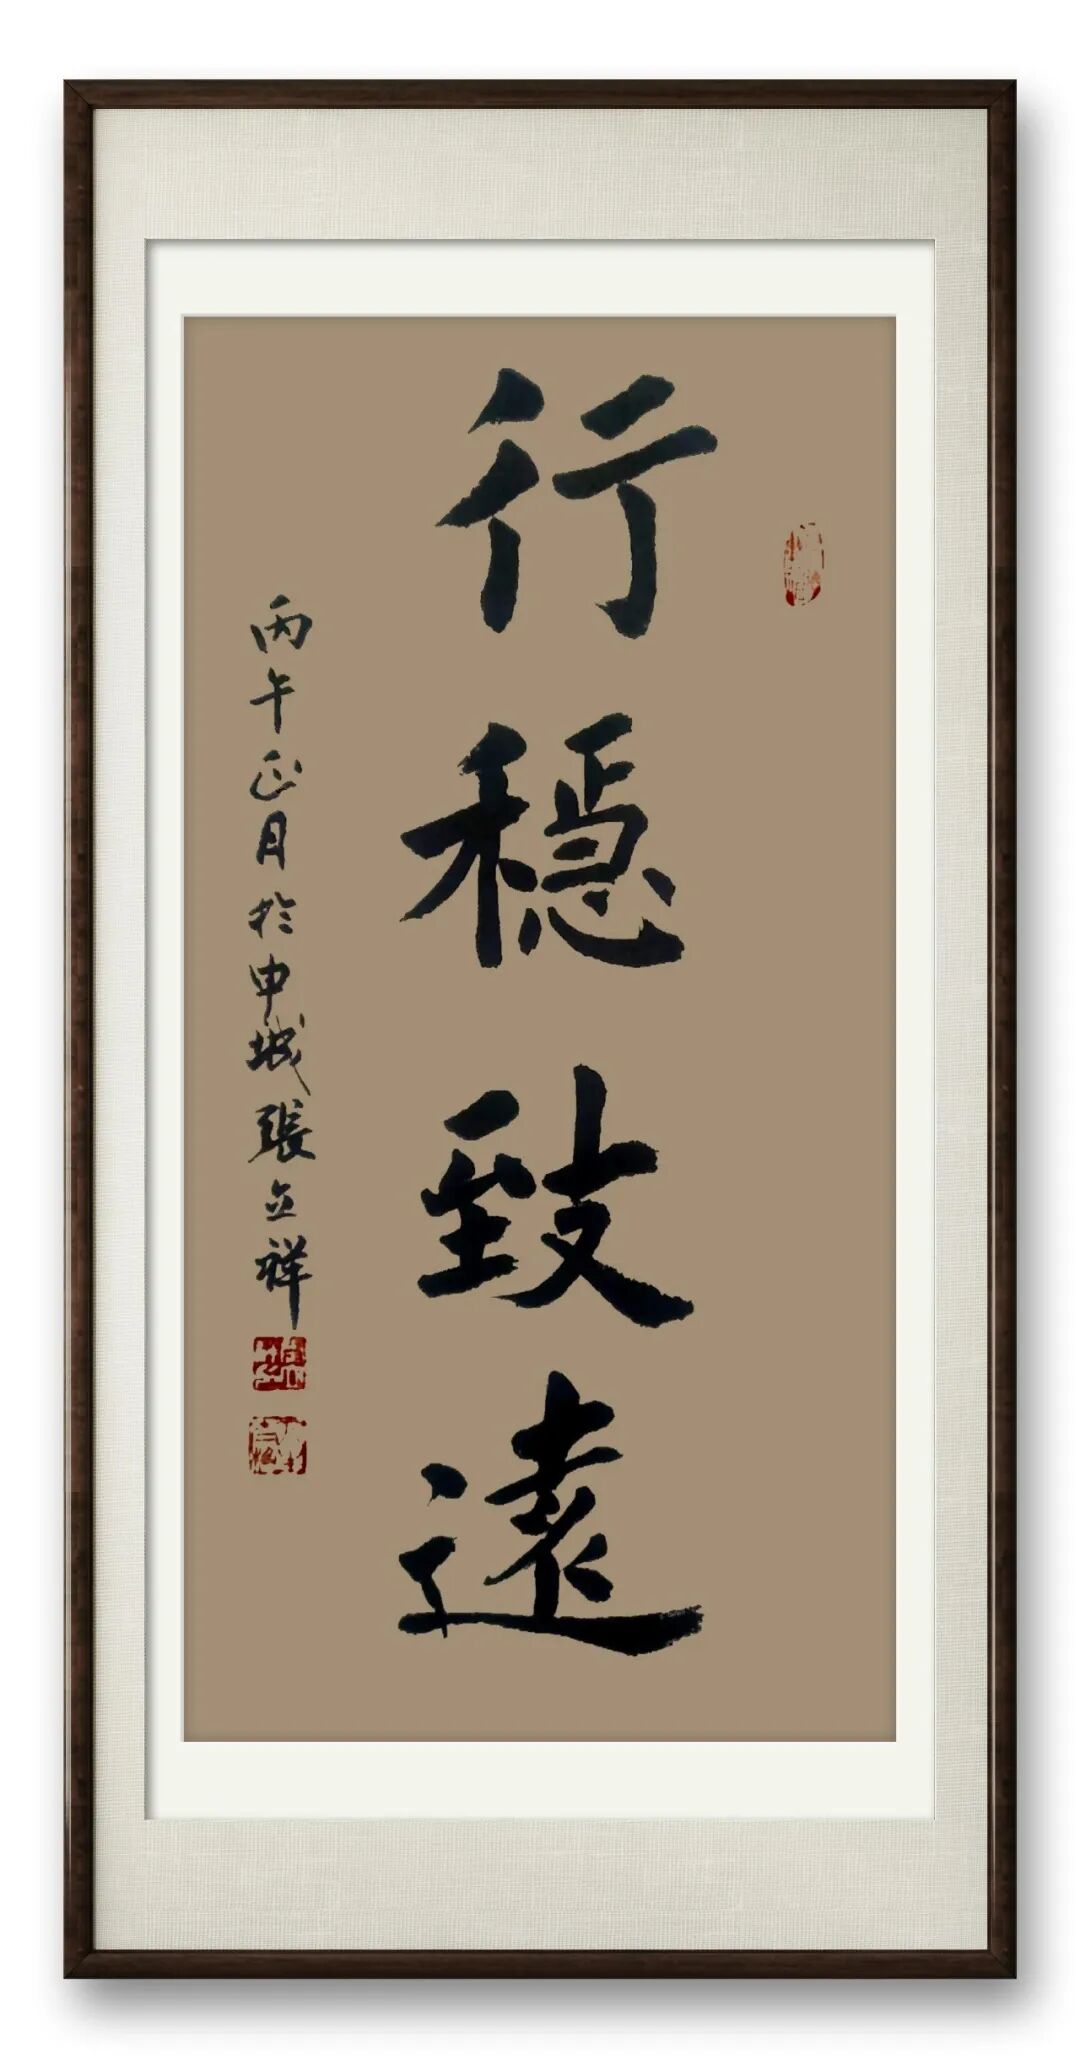 行穩致遠
丙午正月於申城張立祥